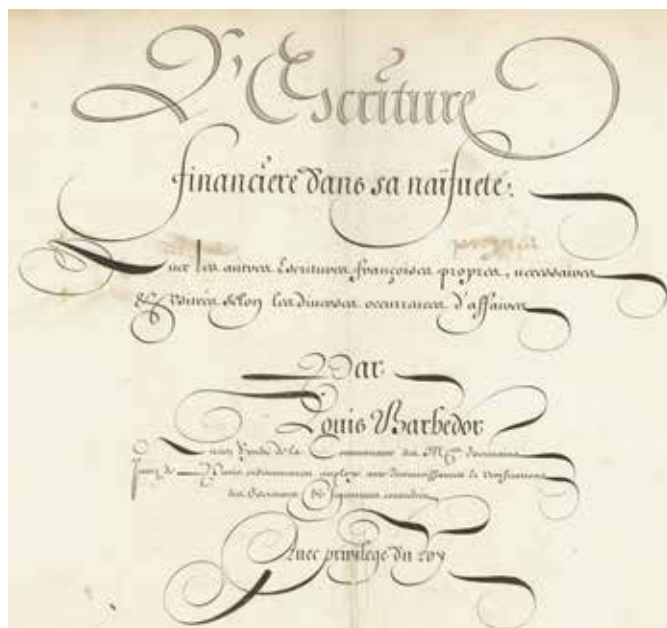 L'Escriture
financiere dans sa naïfueté.
Auec les autres Escritures françoises propres, necessaires
& vsitées selon les diuerses occurrances d'affaires
Par
Louis Barbedor
Ancien Syndic de la Communauté des Mes. Escriuains
Jurez de Paris ordinairement
des Escritures & Signatures
Auec priuilege du roy